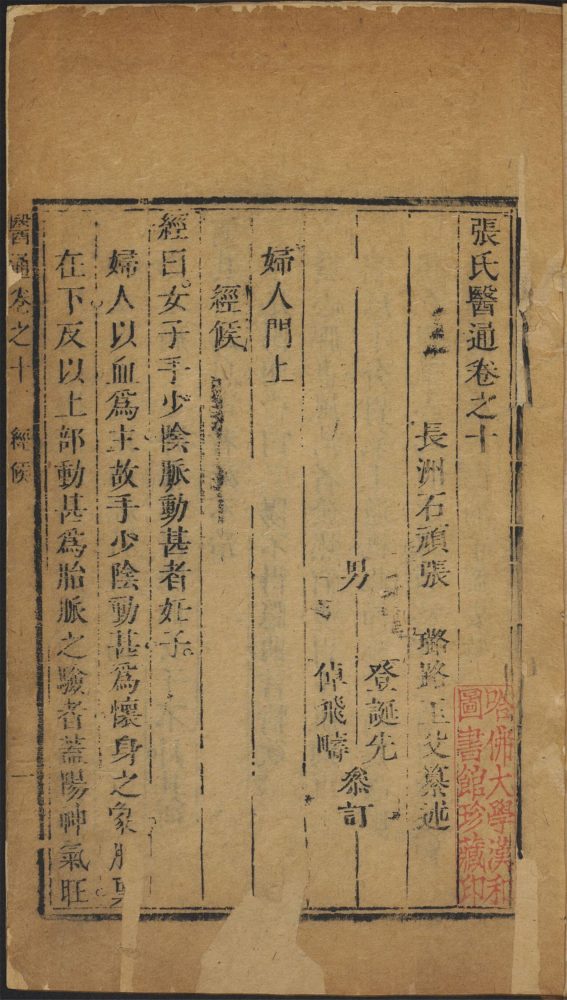 張氏醫通卷之十
長洲石頑張 璐路玉父纂述
男
登誕先
倬飛疇
叅訂
婦人門上
經候
經曰女子手少陰脈動甚者妊子
婦人以血爲主故手少陰動甚爲懷身之象
在下反以上部動甚爲胎脈之驗者蓋陽神氣旺
醫通卷之十 經候 一
哈佛大學漢和
圖書館珍藏印